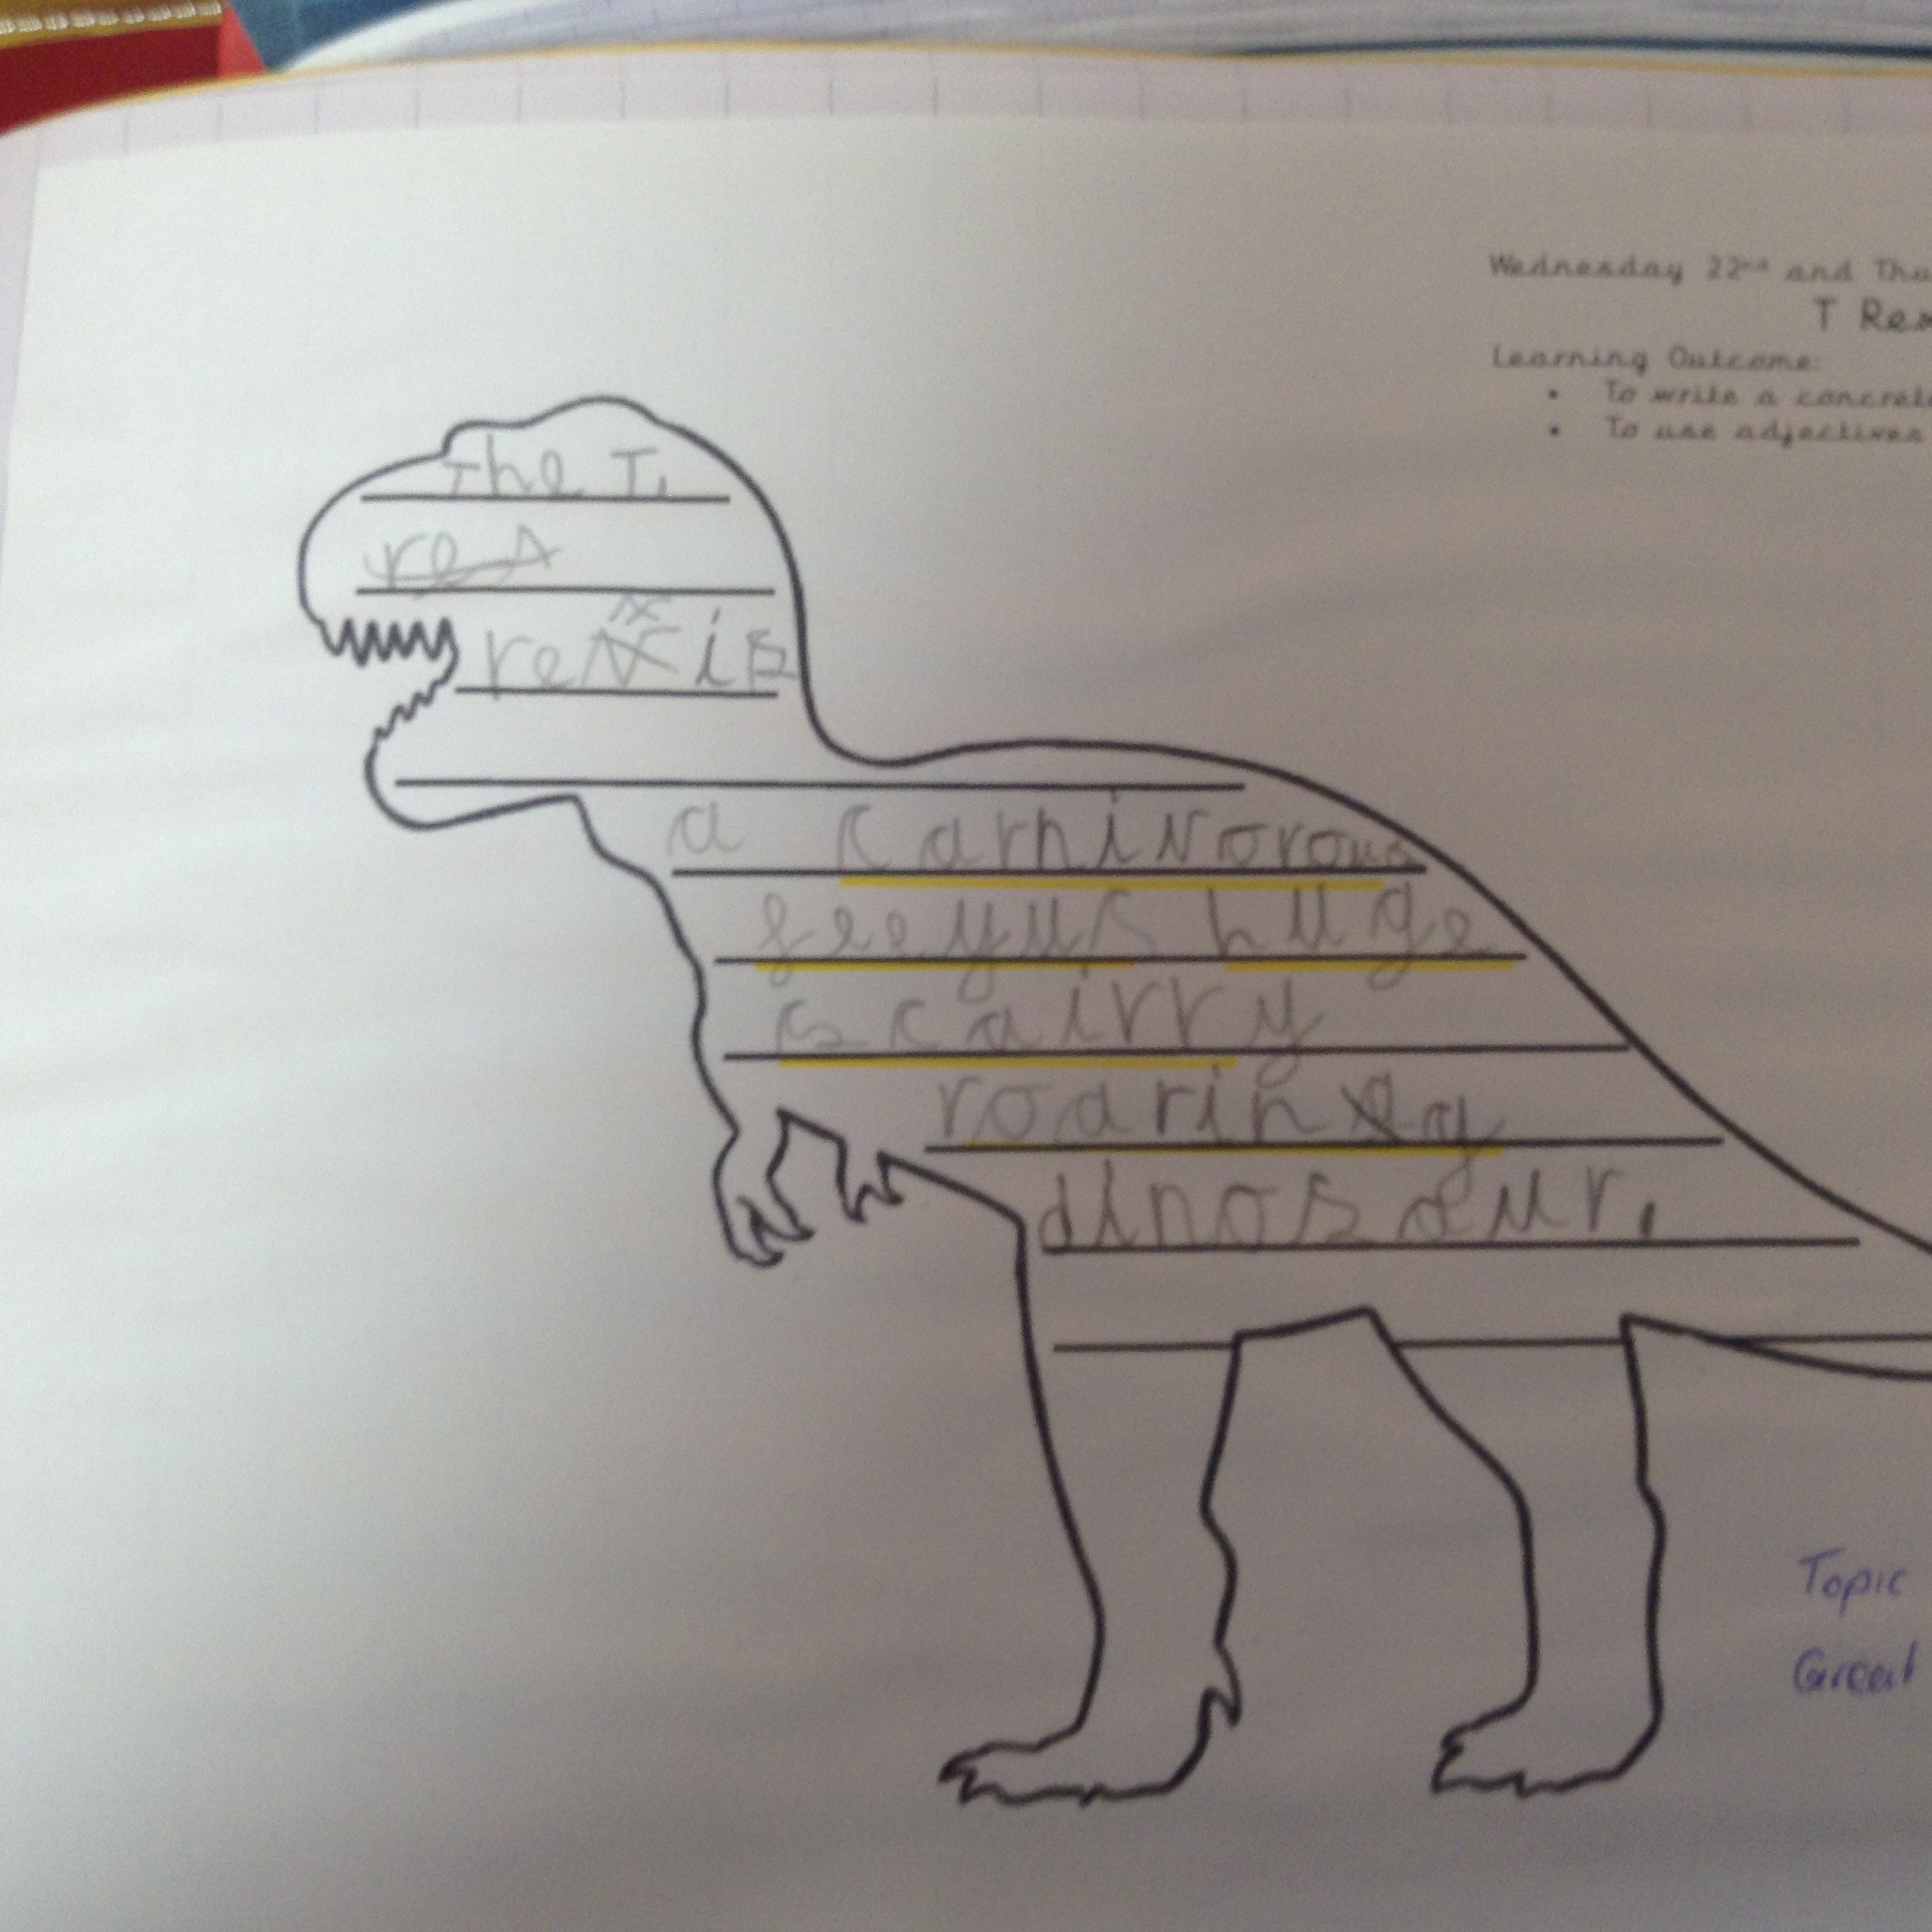 Wednesday 22nd and Thu
T Rex
Learning Outcome:
• To write a concrete
• To use adjectives
The T.
rex is
a carnivorous
feeyus huge
scairry
roaring
dinosaur.
Topic
Great